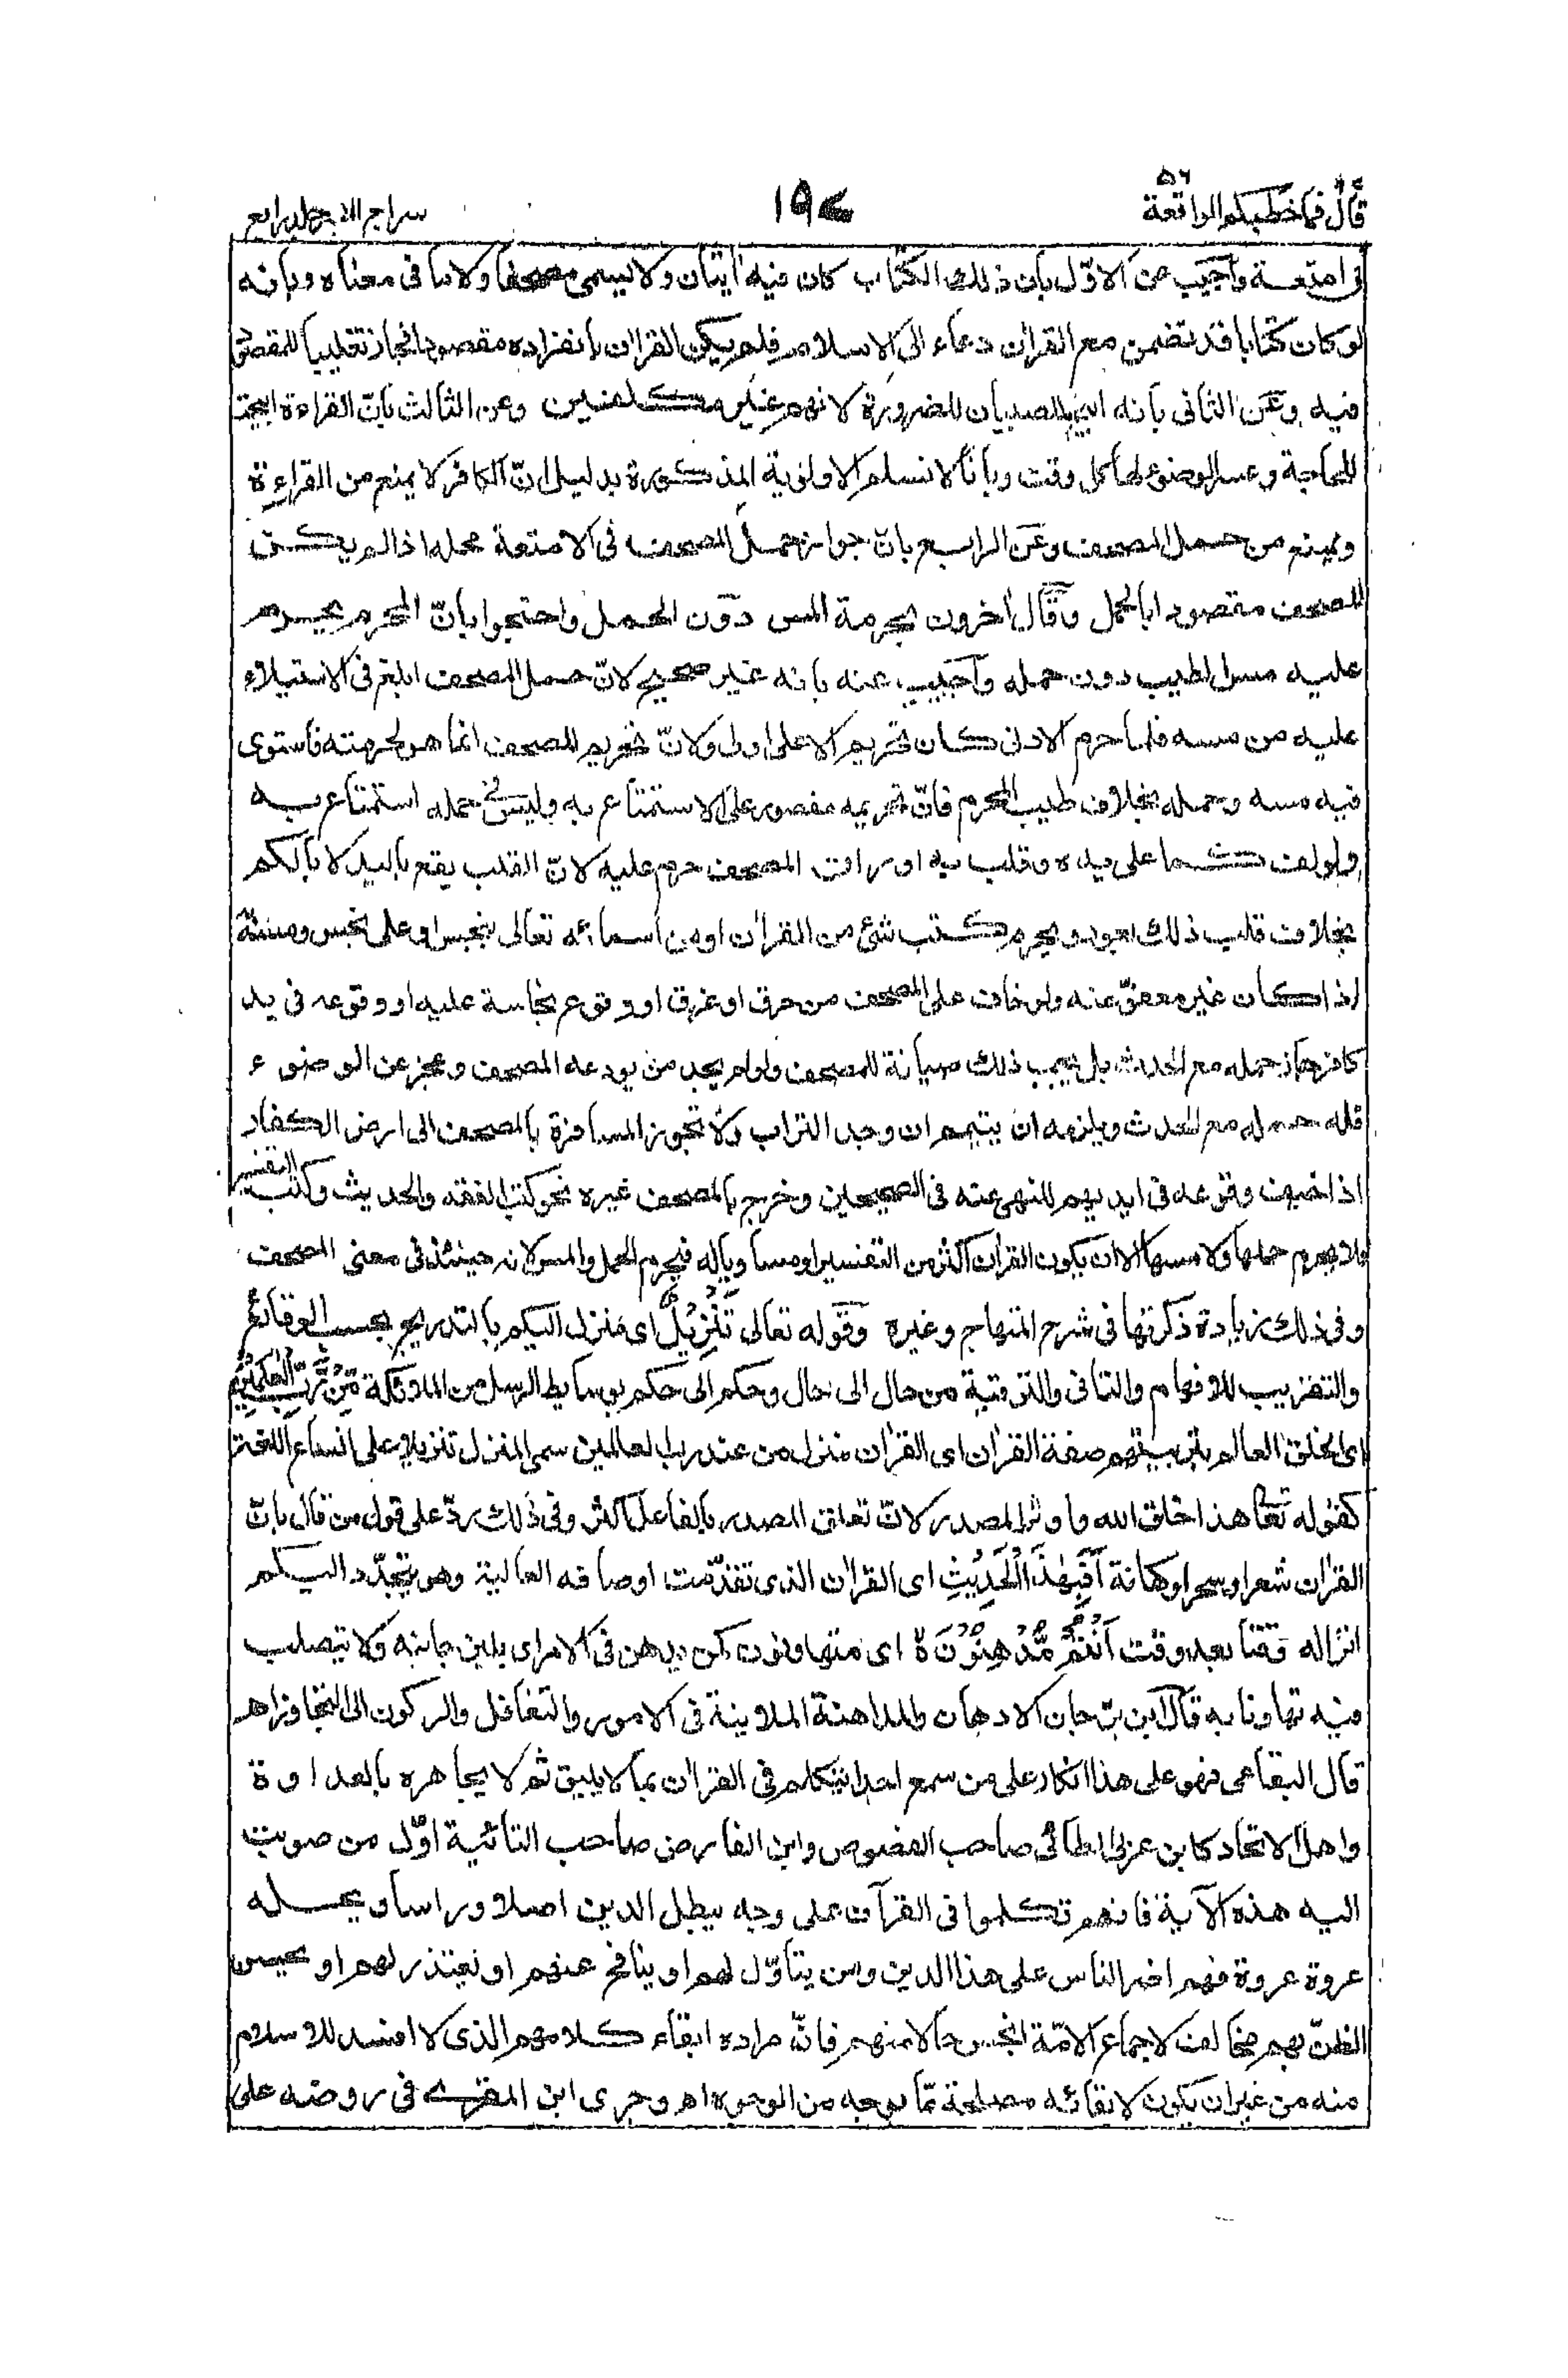 قال فما خطبكم الواقعة ٥٦
١٩٧
سراج الرابع
فى امتعة واجيب عن الاوّل بان ذلك الكتاب كان فيه ايتان ولا يسمى مصحفا ولا ما فى معناه وبانه
لو كان كتابا فقد تضمن مع القران دعاء الى الاسلام فلم يكن القران بانفراده مقصودا فجاز تغليبا للمقصود
فيه وعن الثانى بانه ابيح للصبيان للضرورة لانهم غير مكلفين وعن الثالث بانّ القراءة ابيحت
للحاجة وعسر الوضوء لها كل وقت وبانا لا نسلم الاولوية المذكورة بدليل انّ الكافر لا يمنع من القراءة
ويمنع من حمل المصحف وعن الرابع بانّ جواز حمل المصحف فى الامتعة محله اذا لم يكن
المصحف مقصودا بالحمل وقال اخرون بحرمة المس دون الحمل واحتجوا بانّ المحرم يحرم
عليه مس الطيب دون حمله واجيب عنه بانه غير صحيح لانّ حمل المصحف ابلغ فى الاستيلاء
عليه من مسه فلما حرم الادنى كان تحريم الاعلى اولى ولانّ تحريم المصحف انما هو لحرمته فاستوى
فيه مسه وحمله بخلاف طيب المحرم فانّ تحريمه مقصور على الاستمتاع به وليس فى حمله استمتاع به
ولو لف كما على يده وقلب به اوراق المصحف حرم عليه لانّ القلب يقع باليد لا بالكم
بخلاف قلب ذلك بعود ويحرم كتب شئ من القران او من اسمائه تعالى بنجس او على نجس ومسه
اذا كان غير معفوّ عنه ولو خاف على المصحف من حرق او غرق او وقوع نجاسة عليه او وقوعه فى يد
كافر جاز حمله مع الحدث بل يجب ذلك صيانة للمصحف ولو لم يجد من يودعه المصحف وعجز عن الوضوء
فله حمله مع الحدث ويلزمه ان يتيمم ان وجد التراب ولا تجوز المسافرة بالمصحف الى ارض الكفار
اذا خيف وقوعه فى ايديهم للنهى عنه فى الصحيحين وخرج بالمصحف غيره نحو كتب الفقه والحديث وكتب التفسير
فلا يحرم حملها ولا مسها الا ان يكون القران اكثر من التفسير او مساويا له فيحرم الحمل والمس لانه حينئذ فى معنى المصحف
وفى ذلك زيادة ذكرتها فى شرح المنهاج وغيره وقوله تعالى تَنْزِيْلٌ اى منزل اليكم بالتدريج بحسب الوقائع
والتقريب للافهام والتانى والترقية من حال الى حال وحكم الى حكم بوسايط الرسل من الملائكة مِّنْ رَّبِّ الْعٰلَمِيْنَ
اى الخلق العالم بتربيتهم صفة القران اى القران منزل من عند رب العالمين سمى المنزل تنزيلا على اتساع اللغة
كقوله تعا هذا خلق الله واوثر المصدر لانّ تعلق المصدر بالفاعل اكثر وفى ذلك ردّ على قول من قال بانّ
القران شعر او سحر او كهانة اَفَبِهٰذَا الْحَدِيْثِ اى القران الذى تقدّمت اوصافه العالية وهو يتجدّد اليكم
انزاله وقتا بعد وقت اَنْتُمْ مُّدْهِنُوْنَ اى متهاونون كمن يدهن فى الامر اى يلين جانبه ولا يتصلب
فيه تهاونا به قال ابن برّجان الادهان والمداهنة الملاينة فى الامور والتغافل والركون الى التجاوز اهـ
قال البقاعى فهو على هذا انكار على من سمع احدا يتكلم فى القران بما لا يليق ثم لا يجاهره بالعداوة
واهل الاتحاد كابن عربى الطائى صاحب الفصوص وابن الفارض صاحب التائية اوّل من صوبت
اليه هذه الآية فانهم تكلموا فى القرآن على وجه يبطل الدين اصلا وراسا ويحله
عروة عروة فهم اضر الناس على هذا الدين ومن يتأوّل لهم او ينافح عنهم او يعتذر لهم او يحسن
الظنّ بهم مخالف لاجماع الامّة انجس حالا منهم فانّ مراده ابقاء كلامهم الذى لا افسد للاسلام
منه من غير ان يكون لابقائه مصلحة مّا بوجه من الوجوه اهـ وجرى ابن المقرى فى روضه على